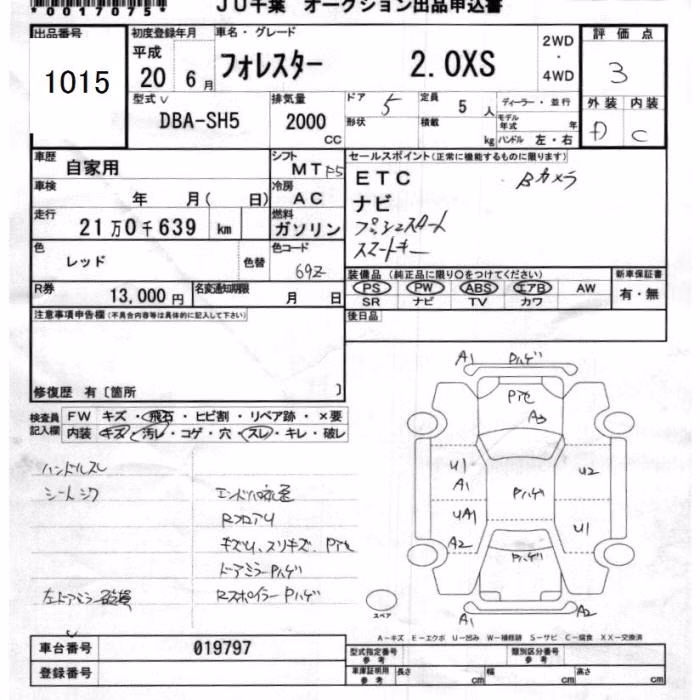 *0017075*
JU千葉 オークション出品申込書
出品番号
1015
初度登録年月
平成
20 6月
車名・グレード
フォレスター 2.0XS
2WD
・
4WD
評価点
3
外装 内装
D C
型式
DBA-SH5
排気量
2000 CC
ドア 5
形状
定員 5人
積載 kg
ディーラー・並行
モデル年式 年
ハンドル 左・右
車歴
自家用
シフト
MT F5
セールスポイント(正常に機能するものに限ります)
ETC Bカメラ
ナビ
プッシュスタート
スマートキー
車検
年 月( 日)
冷房
AC
走行
21万0千639 km
燃料
ガソリン
色
レッド
色替
色コード
69Z
装備品(純正品に限り○をつけてください)
PS PW ABS エアB AW
SR ナビ TV カワ
新車保証書
有・無
R券
13,000円
名変通知期限
月 日
後日品
注意事項申告欄(不具合内容等は具体的に記入して下さい)
修復歴 有〔箇所 〕
検査員記入欄
FW キズ・飛石・ヒビ割・リペア跡・×要
内装 キズ・汚レ・コゲ・穴・スレ・キレ・破レ
ハンドルスレ
シートシワ
RフロアU
キズU、スリキズ、P
ドアミラーPハゲ
左ドアミラー RスポイラーPハゲ
A1 Pハゲ
P
A3
U1
A1
U2
Pハゲ
UA1
U1
A2
Pハゲ
A1 A2
スペア
A-キズ E-エクボ U-凹み W-補修跡 S-サビ C-腐食 XX-交換済
車台番号
019797
登録番号
型式指定番号
参考
類別区分番号
参考
車庫証明用
参考
長さ cm 幅 cm 高さ cm